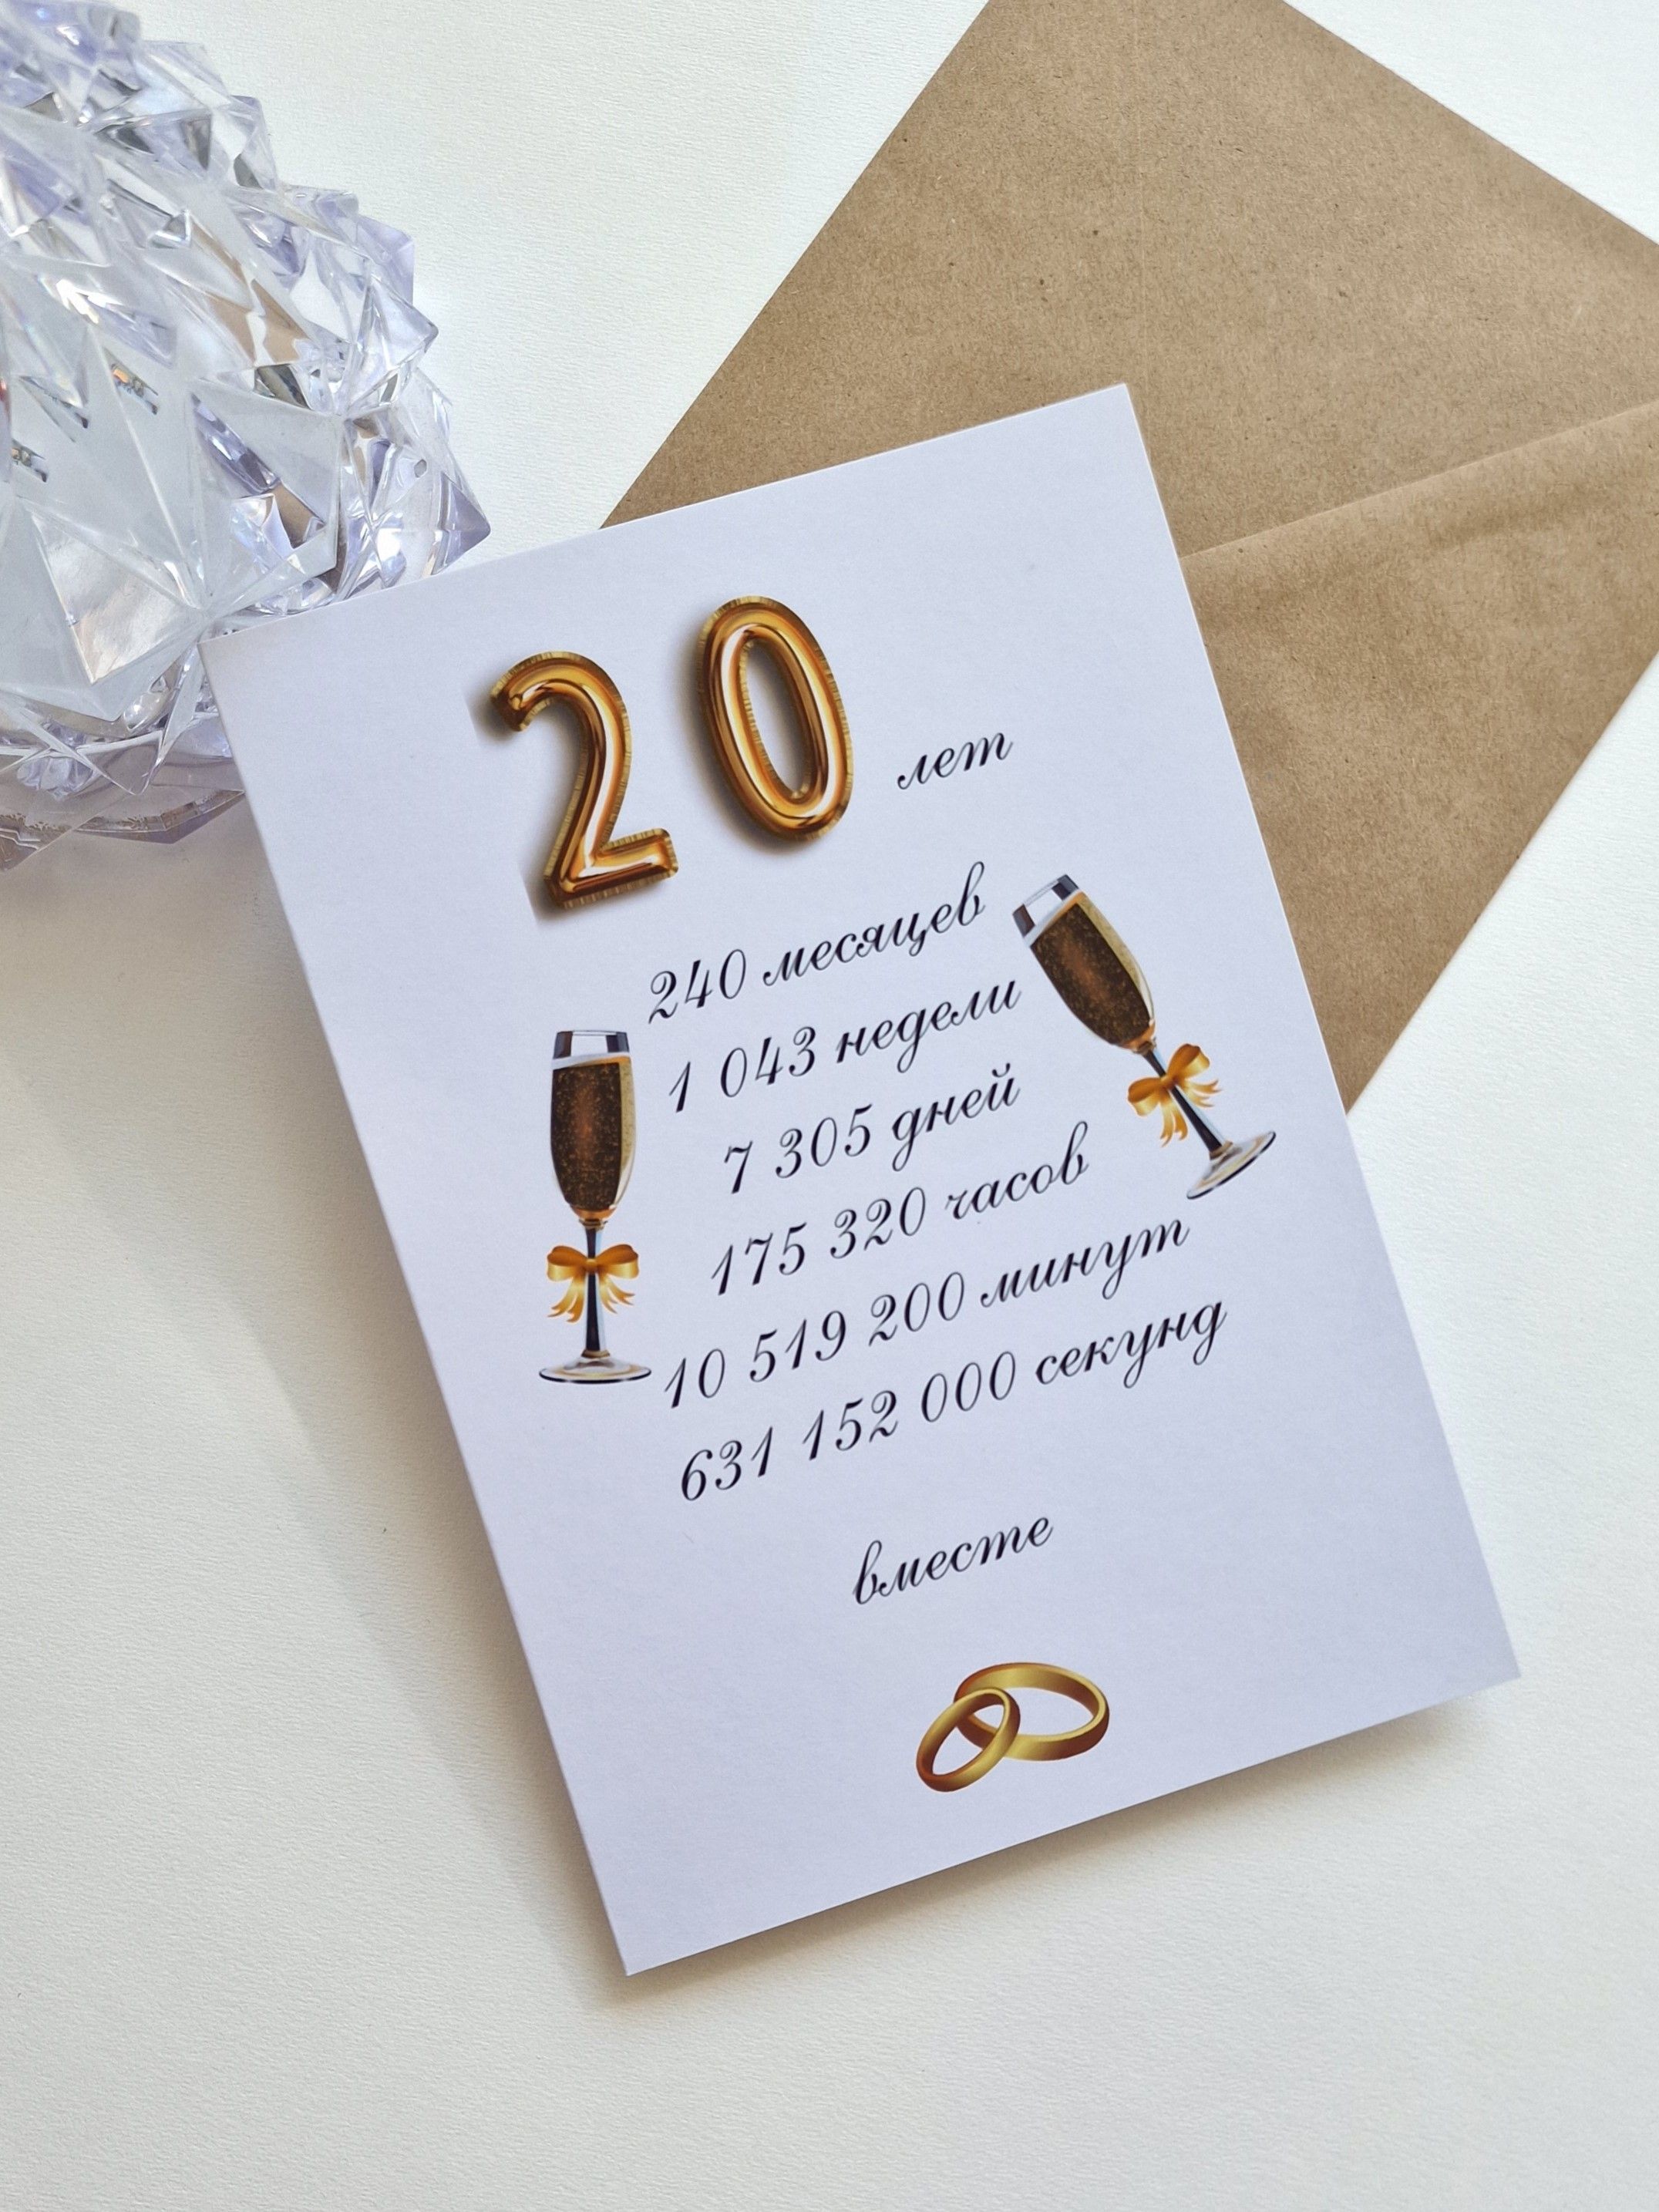 20 лет
240 месяцев
1 043 недели
7 305 дней
175 320 часов
10 519 200 минут
631 152 000 секунд
вместе